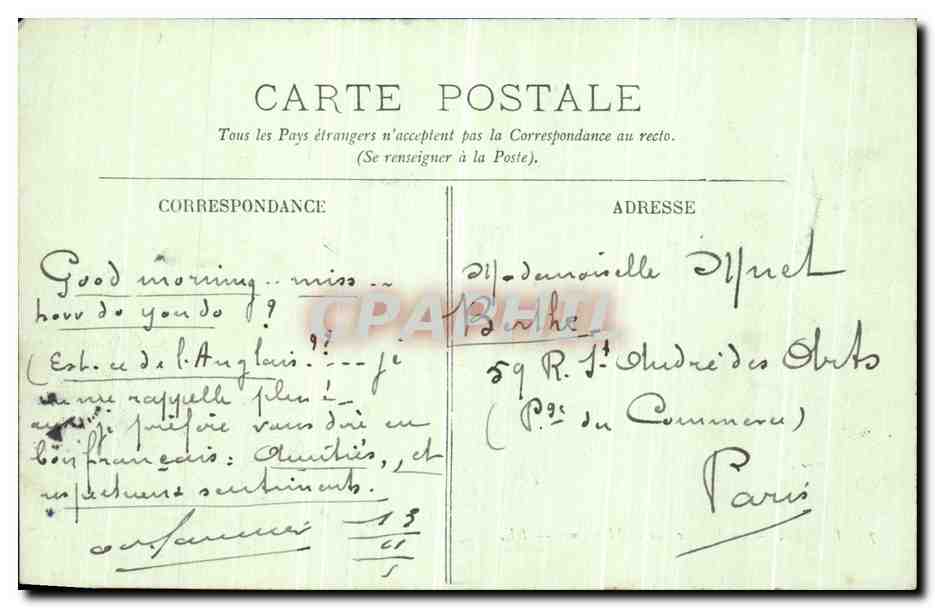 CARTE POSTALE
Tous les Pays étrangers n'acceptent pas la Correspondance au recto.
(Se renseigner à la Poste).
CORRESPONDANCE
Good morning .. miss ..
how do you do ?
(Est-ce de l'Anglais ?? --- je
ne me rappelle plus) -
aussi je préfère vous dire en
bon français : Amitiés, et
respectueux sentiments.
13
11
5
ADRESSE
Mademoiselle
Berthe
59 R. St André des Arts
(Pge du Commerce)
Paris
CPAPHIL